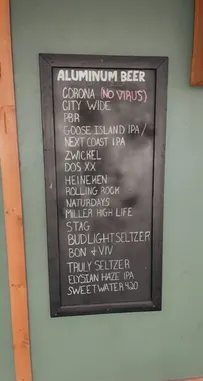 ALUMINUM BEER
CORONA (NO VIRUS)
CITY WIDE
PBR
GOOSE ISLAND IPA /
NEXT COAST IPA
ZWICKEL
DOS XX
HEINEKEN
ROLLING ROCK
NATURDAYS
MILLER HIGH LIFE
STAG
BUDLIGHT SELTZER
BON & VIV
TRULY SELTZER
ELYSIAN HAZE IPA
SWEETWATER 420